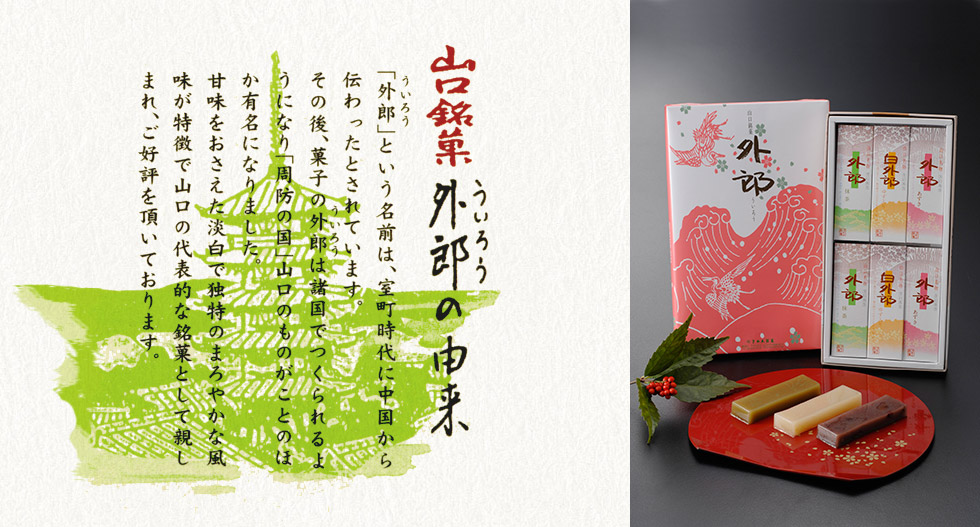 山口銘菓 外郎の由来
ういろう
「外郎」という名前は、室町時代に中国から
ういろう
伝わったとされています。
その後、菓子の外郎は諸国でつくられるよ
ういろう
うになり「周防の国」山口のものがことのほ
か有名になりました。
甘味をおさえた淡白で独特のまろやかな風
味が特徴で山口の代表的な銘菓として親し
まれ、ご好評を頂いております。
山口銘菓
外郎
ういろう
外郎
白外郎
外郎
あずき
抹茶
外郎
白外郎
外郎
あずき
抹茶